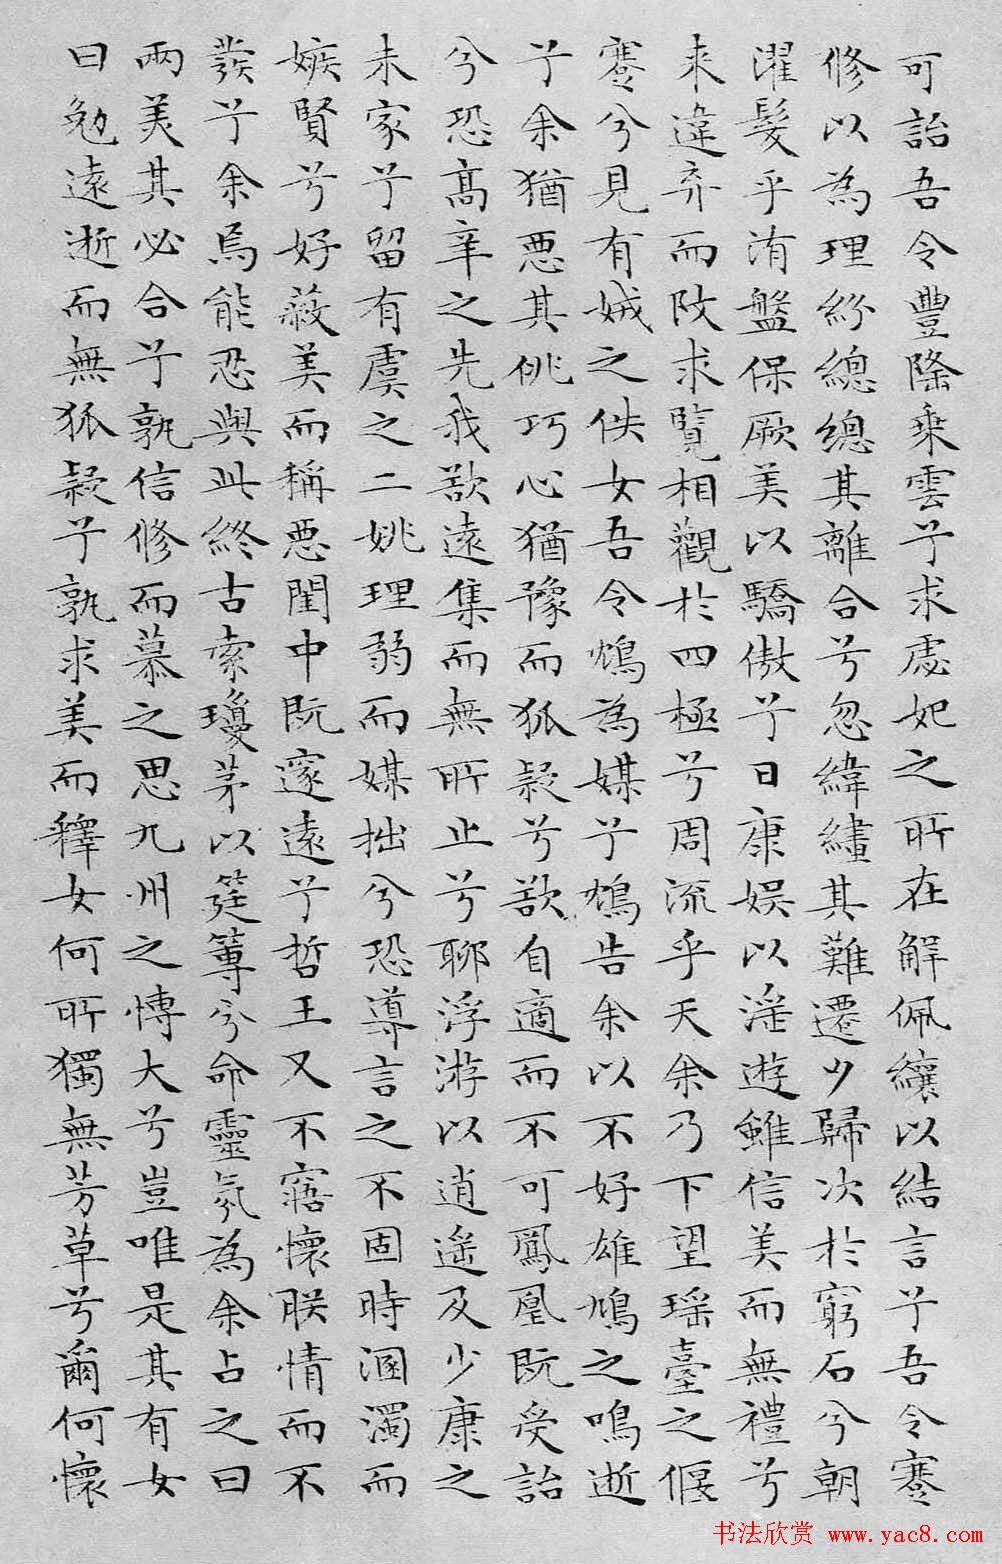 可詒吾令豐隆乘雲兮求虙妃之所在解佩纕以結言兮吾令蹇
修以為理紛總總其離合兮忽緯繣其難遷夕歸次於窮石兮朝
濯髮乎洧盤保厥美以驕傲兮日康娛以淫遊雖信美而無禮兮
来違弃而改求覽相觀於四極兮周流乎天余乃下望瑤臺之偃
蹇兮見有娀之佚女吾令鴆為媒兮鴆告余以不好雄鳩之鳴逝
兮余猶惡其佻巧心猶豫而狐疑兮欲自適而不可鳳凰既受詒
兮恐高辛之先我欲遠集而無所止兮聊浮游以逍遙及少康之
未家兮留有虞之二姚理弱而媒拙兮恐導言之不固時溷濁而
嫉賢兮好蔽美而稱惡閨中既邃遠兮哲王又不寤懷朕情而不
發兮余焉能忍與此終古索瓊茅以筳篿兮命靈氛為余占之曰
兩美其必合兮孰信修而慕之思九州之博大兮豈唯是其有女
曰勉遠逝而無狐疑兮孰求美而釋女何所獨無芳草兮爾何懷
书法欣赏 www.yac8.com